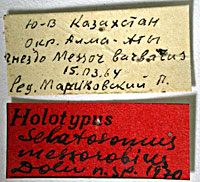 Ю-В Казахстан
окр. Алма-Аты
гнездо Messor barbarus
15.03.64
Ред. Мариковский П.
Holotypus
Selatosomus
messorobius
Dolin n.sp. 1970